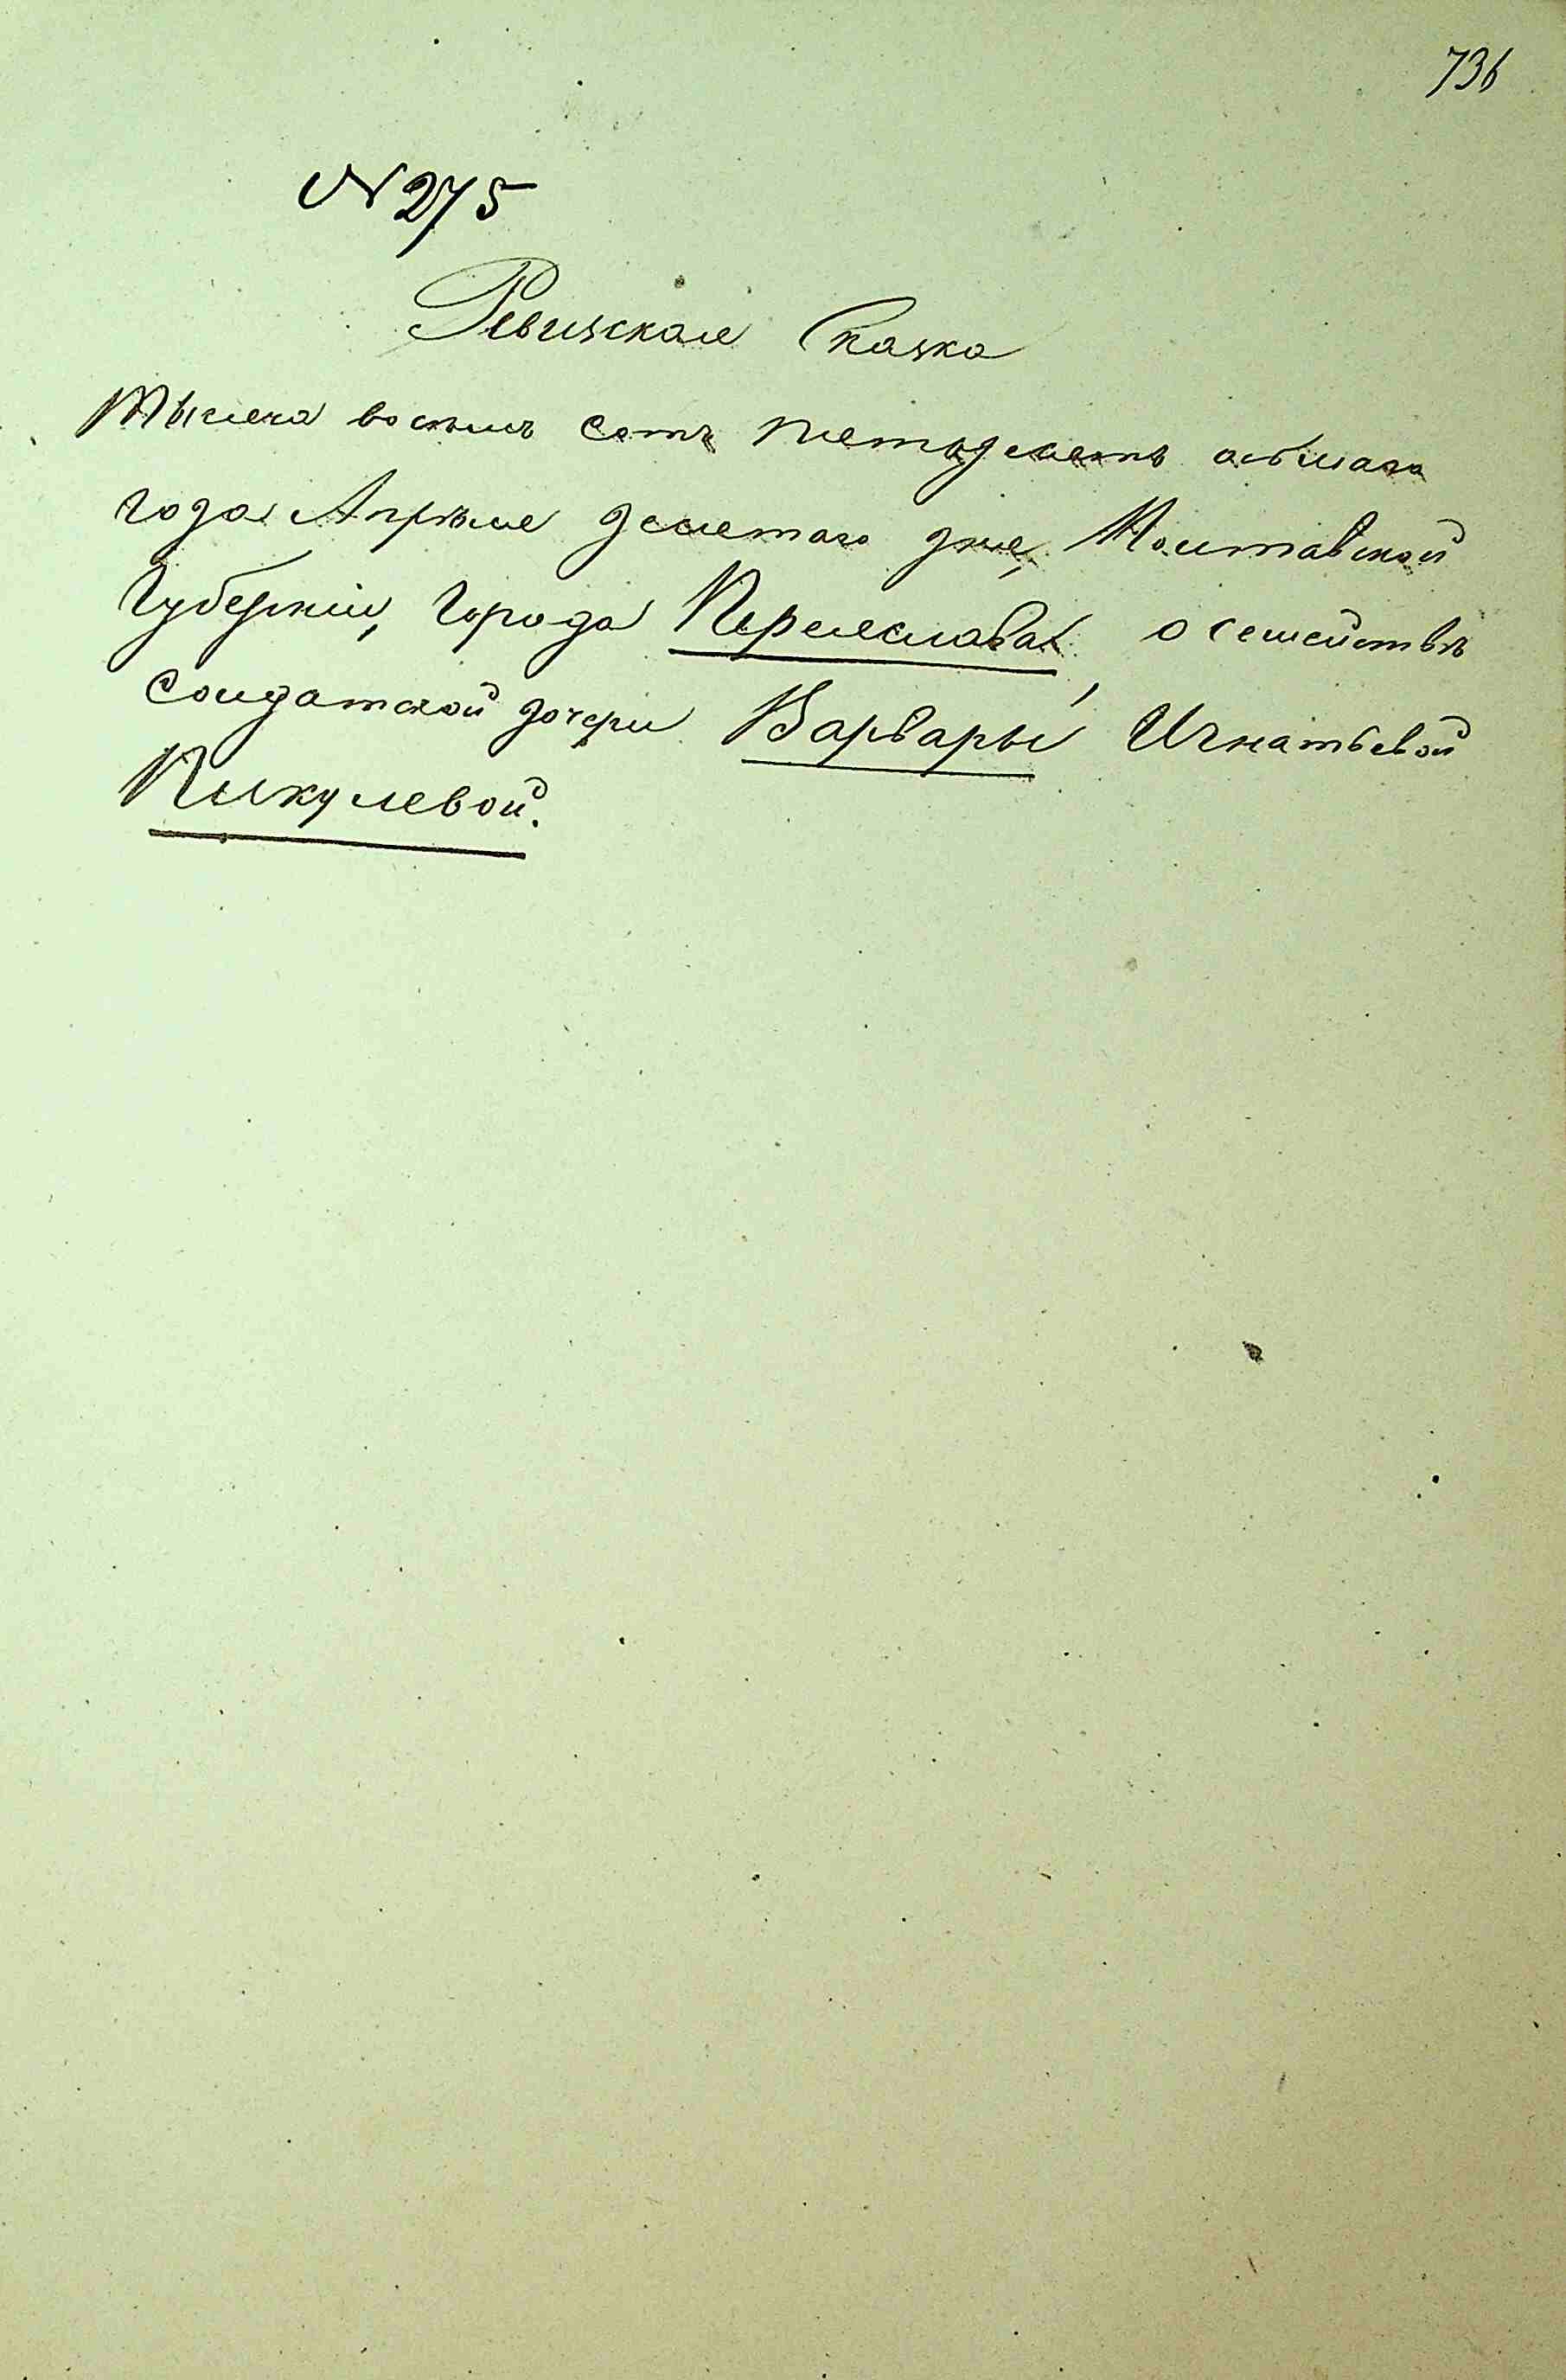 736
№ 275
Ревизская Сказка
Тысяча восемь сотъ пятьдесятъ осьмаго
года Апрѣля десятаго дня, Полтавской
Губерніи, Города Переяслава, о семействѣ
солдатской дочери Варвары Игнатьевой
Пикулевой.